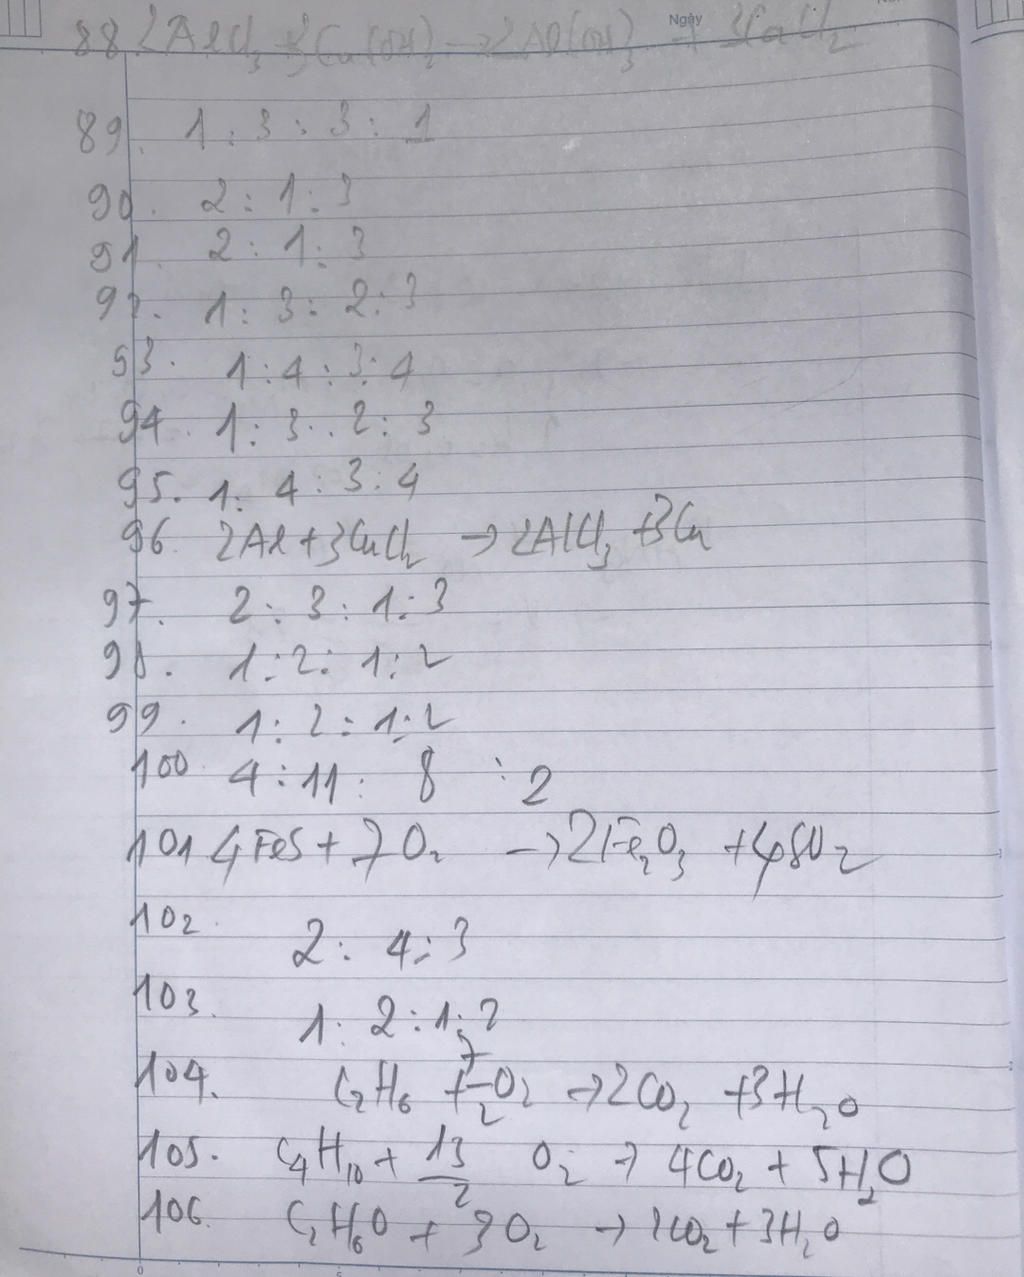 Ngày
88 2AlCl3 + 3Ca(OH)2 → 2Al(OH)3 + 3CaCl2
89. 1 : 3 : 3 : 1
90. 2 : 1 : 3
91. 2 : 1 : 3
92. 1 : 3 : 2 : 3
93. 1 : 4 : 3 : 4
94. 1 : 3 : 2 : 3
95. 1 : 4 : 3 : 4
96. 2Al + 3CuCl2 → 2AlCl3 + 3Cu
97. 2 : 3 : 1 : 3
98. 1 : 2 : 1 : 2
99. 1 : 2 : 1 : 2
100. 4 : 11 : 8 : 2
101 4FeS + 7O2 → 2Fe2O3 + 4SO2
102. 2 : 4 : 3
103. 1 : 2 : 1 : 2
104. C2H6 + 7/2 O2 → 2CO2 + 3H2O
105. C4H10 + 13/2 O2 → 4CO2 + 5H2O
106. C2H6O + 3O2 → 2CO2 + 3H2O